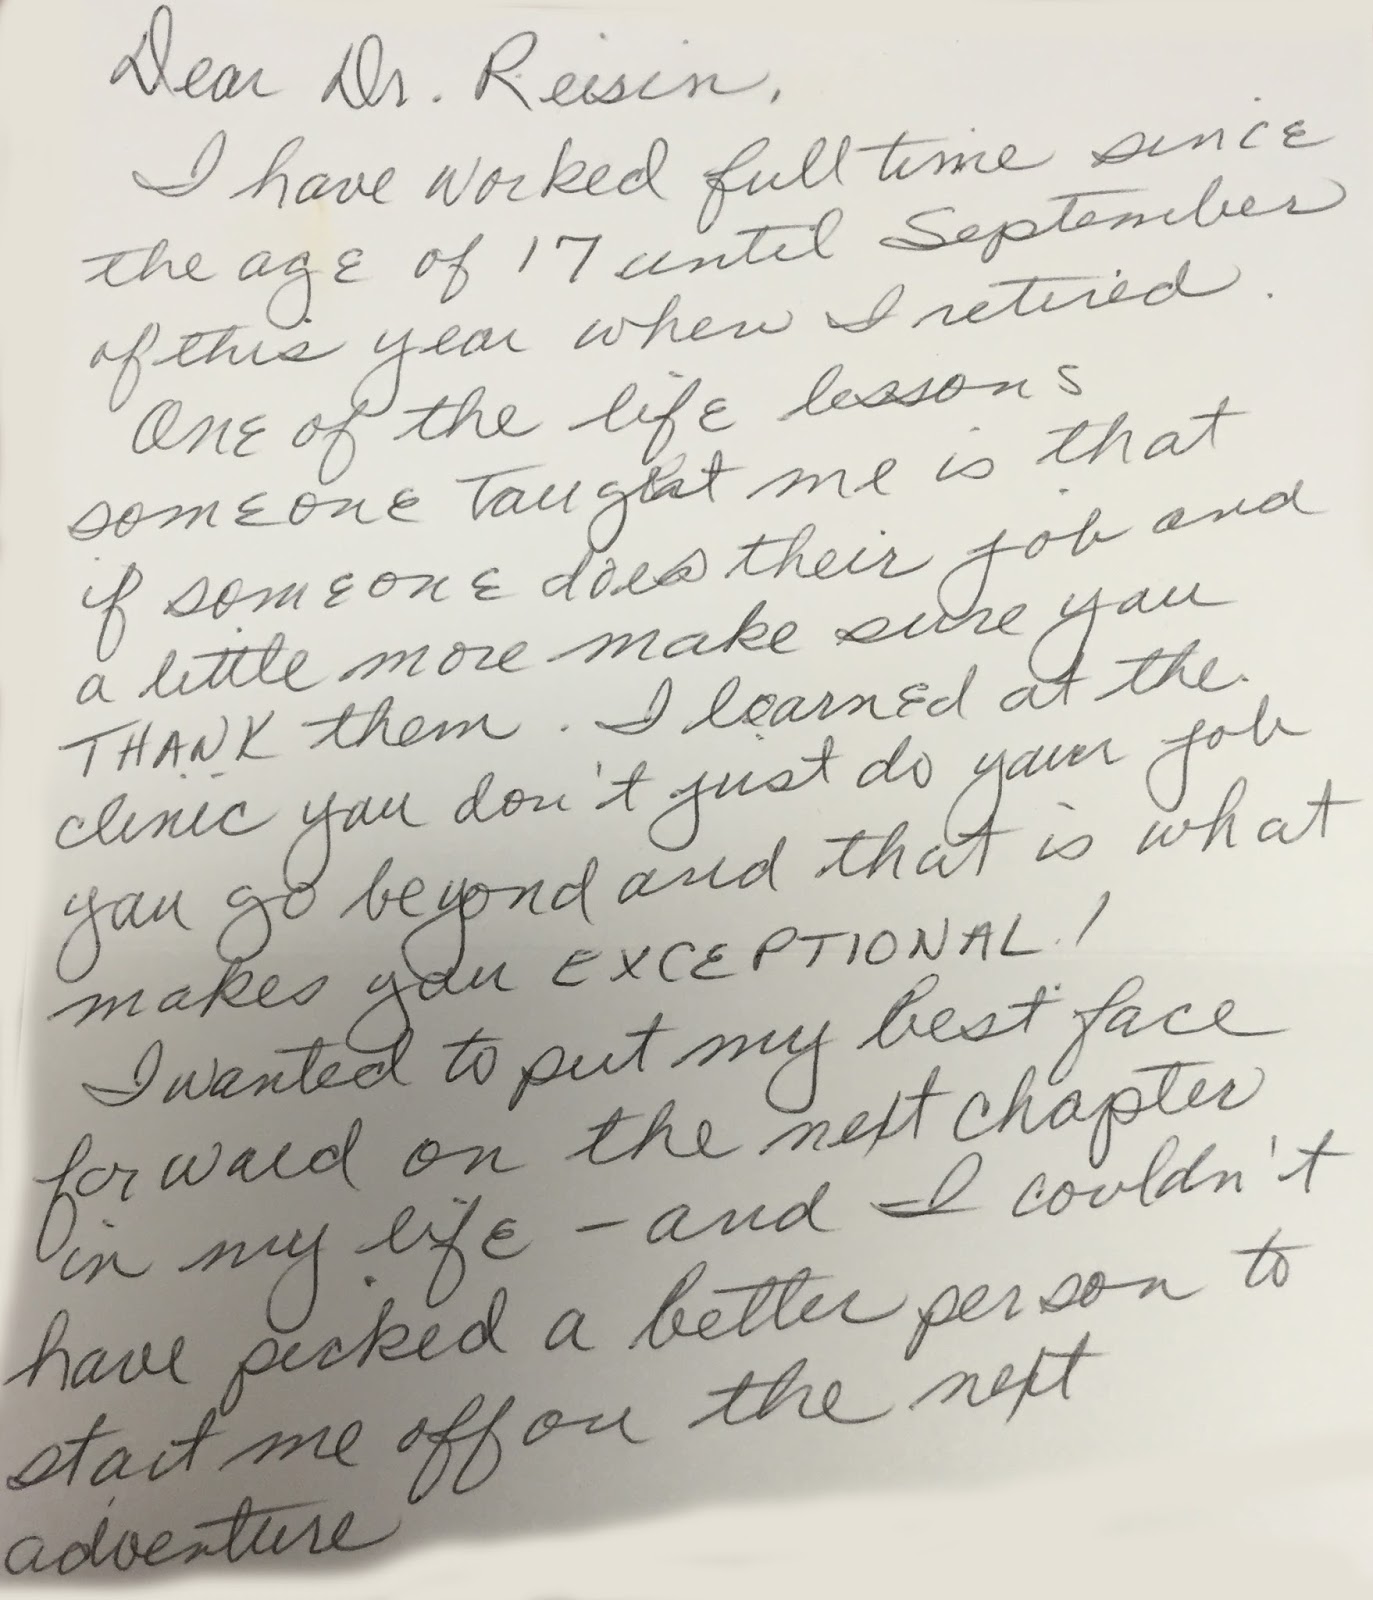 Dear Dr. Reisin,
I have worked full time since
the age of 17 until September
of this year when I retired.
One of the life lessons
someone taught me is that
if someone does their job and
a little more make sure you
THANK them. I learned at the
clinic you don't just do your job
you go beyond and that is what
makes you EXCEPTIONAL!
I wanted to put my best face
forward on the next chapter
in my life - and I couldn't
have picked a better person to
start me off on the next
adventure